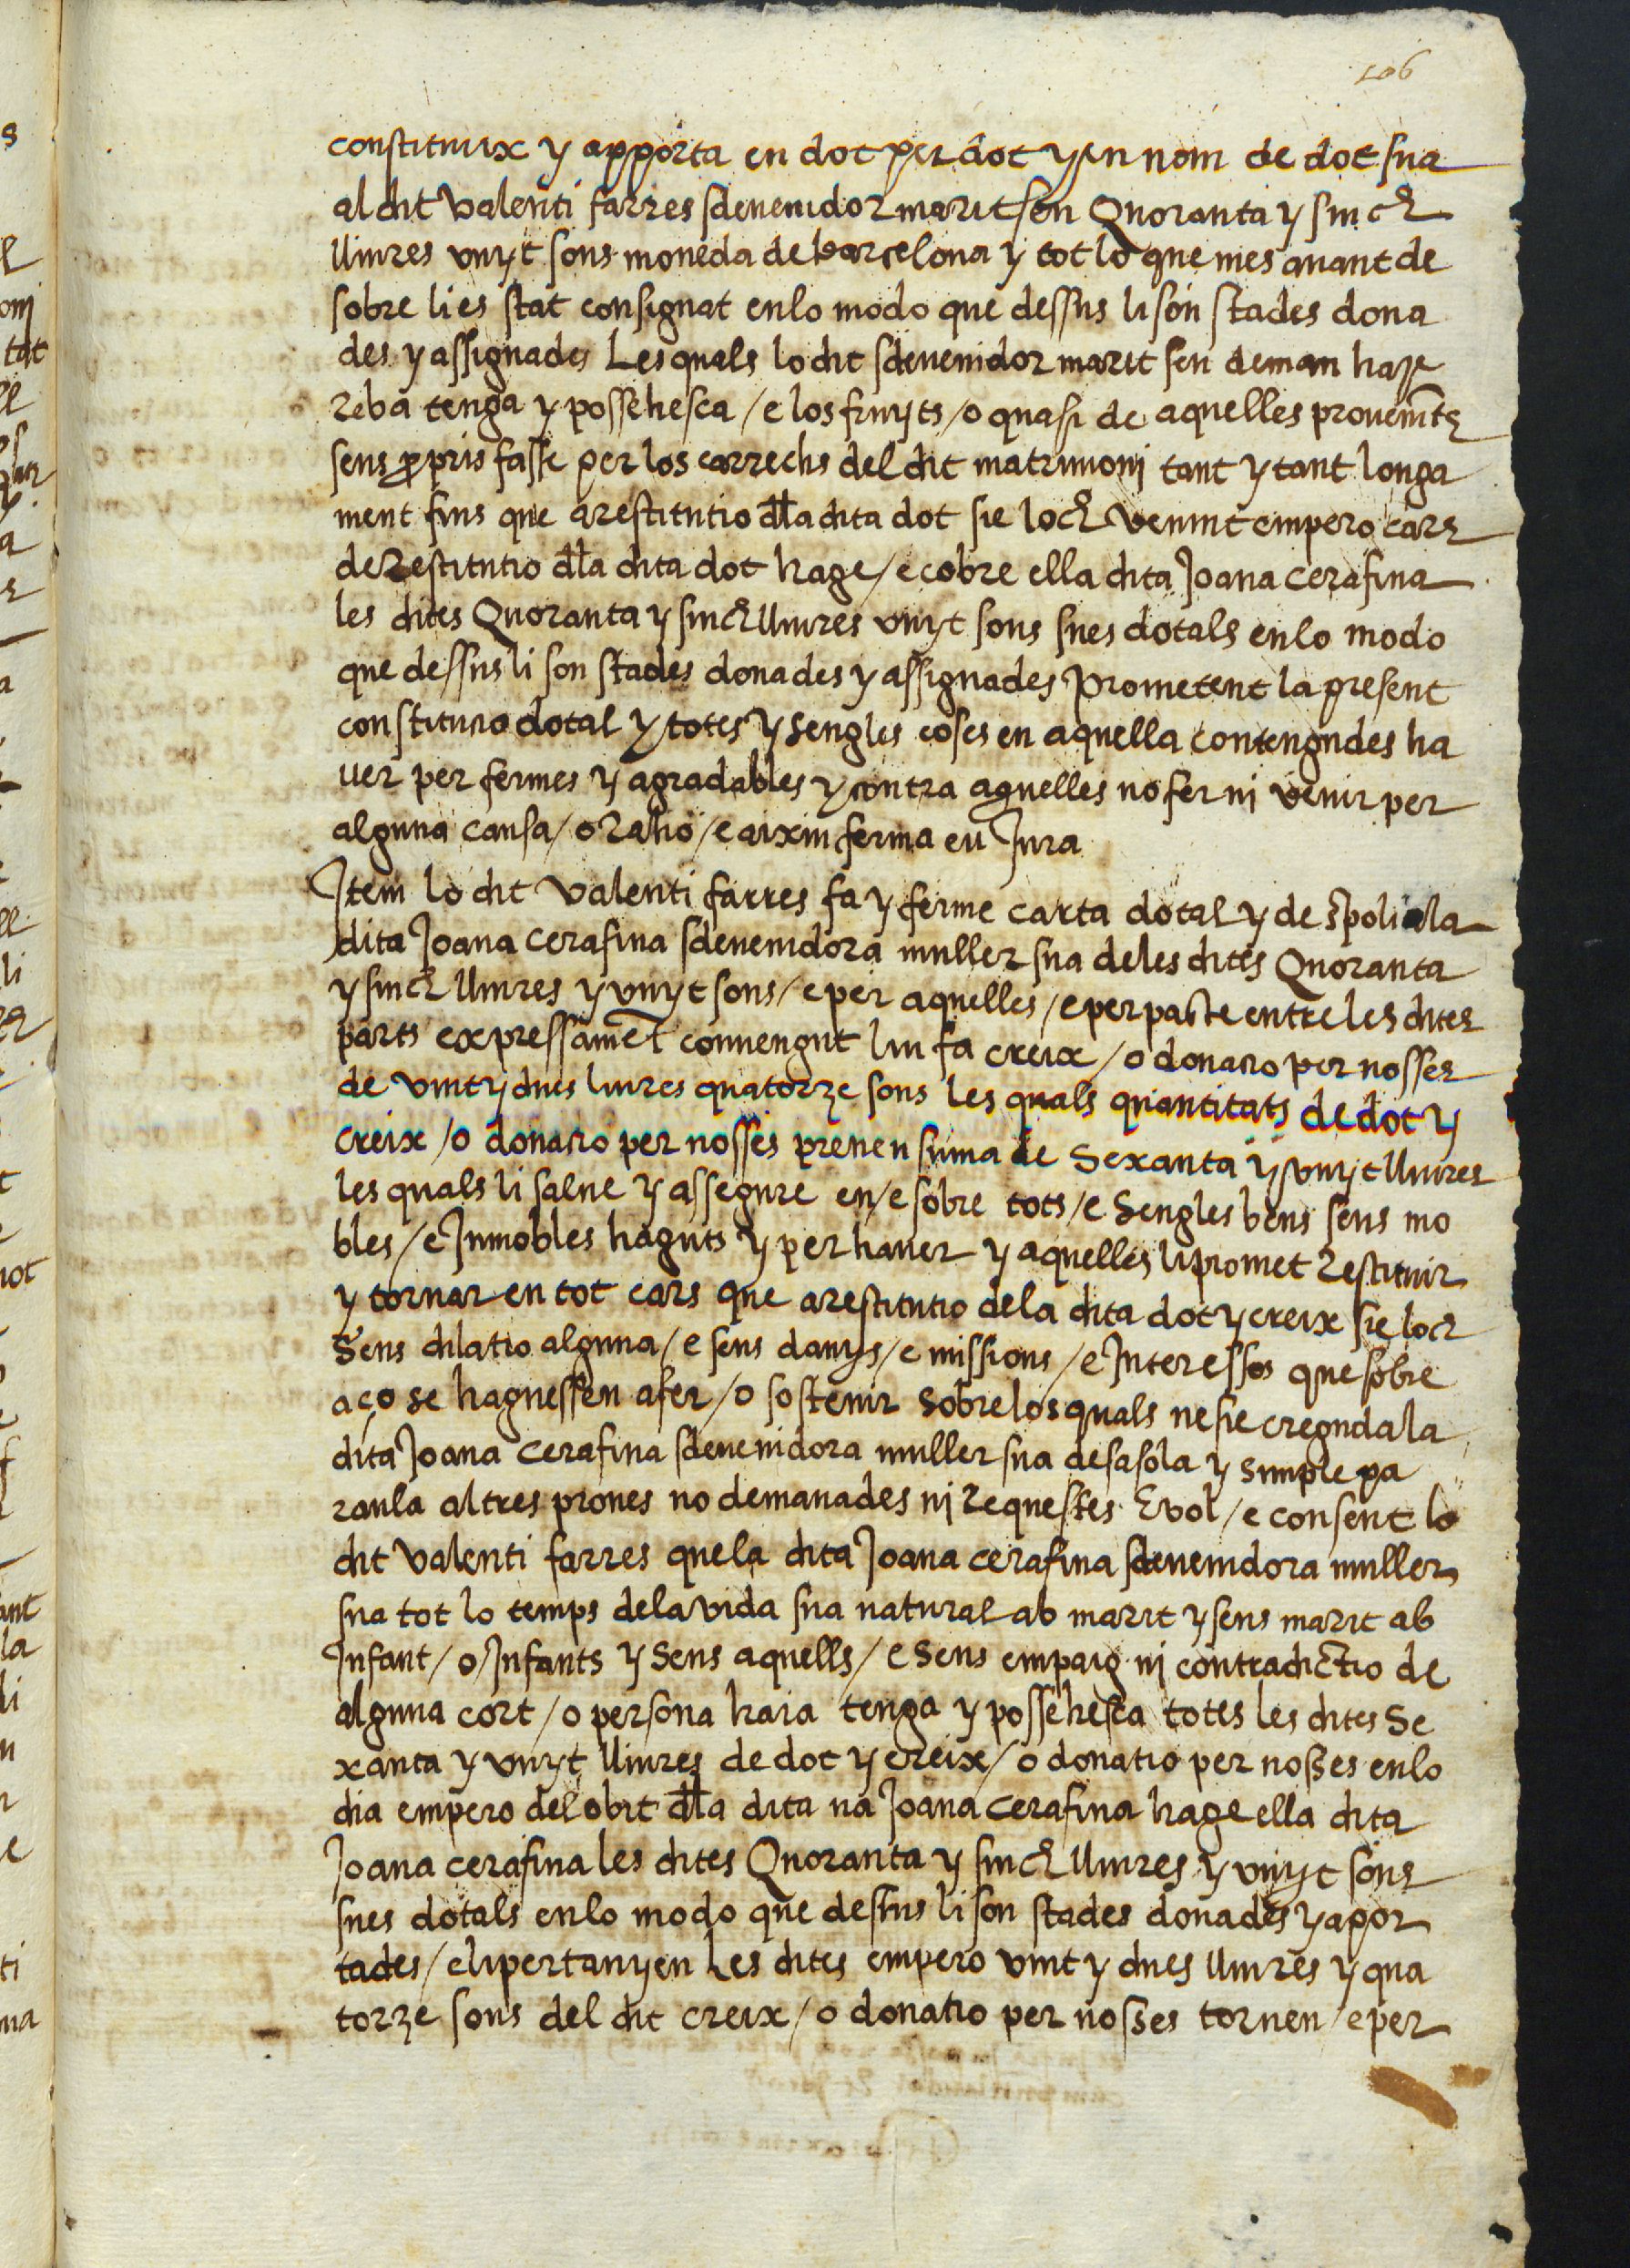 106
constituix y apporta en dot per dot y en nom de dot sua
al dit Valenti farres sdevenidor marit seu Quoranta y sinch
lliures vuyt sous moneda de barcelona y tot lo que mes avant de
sobre li es stat consignat en lo modo que dessus li són stades dona
des y assignades Les quals lo dit sdevenidor marit seu deman haje
reba tenga y possehesca / e los fruyts / o quasi de aquelles provenints
sens propris fasse per los carrechs del dit matrimonj tant y tant longa
ment fins que a restitutio dla dita dot sie loch venint empero cars
de Restitutio dla dita dot hage / e cobre ella dita Joana cerafina
les dites Quoranta y sinch lliures vuyt sous sues dotals en lo modo
que dessus li son stades donades y assignades Prometent la present
constitutio dotal y totes y sengles coses en aquella contengudes ha
ver per fermes y agradables y contra aquelles no fer nj venir per
alguna causa / o Rahó / e aixin ferma eu Jura
Item lo dit Valenti farres fa y ferme carta dotal y de spoli a la
dita Joana cerafina sdevenidora muller sua de les dites Quoranta
y sinch lliures y vuyt sous / e per aquelles / e per pacte entre les dites
parts expressamet convengut liu fa creix / o donatio per nosses
de vint y dues liures quatorze sous les quals quantitats de dot y
creix / o donatio per nosses prenen suma de Sexanta y vuyt lliures
les quals li salve y assegure en / e sobre tots / e Sengles bens seus mo
bles / e Inmobles haguts y per haver y aquelles li promet Restituir
y tornar en tot cars que a restitutio de la dita dot y creix sie loch
Sens dilatio alguna / e sens danys / e missions / e Interessos que sobre
aço se haguessen a fer / o sostenir Sobre los quals ne sie creguda la
dita Joana cerafina sdevenidora muller sua de sa sola y simple pa
raula altres proves no demanades nj Requestes E vol / e consent lo
dit Valenti farres que la dita Joana cerafina sdevenidora muller
sua tot lo temps de la vida sua natural ab marit y sens marit ab
Infant / o Infants y Sens aquells / e Sens empaig nj contradictio de
alguna cort / o persona haia tenga y possehesca totes les dites Se
xanta y vuyt lliures de dot y creix / o donatio per nosses en lo
dia empero del obit dla dita na Joana Cerafina hage ella dita
Joana cerafina les dites Quoranta y sinch lliures y vuyt sous
sues dotals en lo modo que dessus li son stades donades y apor
tades / e li pertanyen Les dites empero vint y dues lliures y qua
torze sous del dit creix / o donatio per nosses tornen / e per